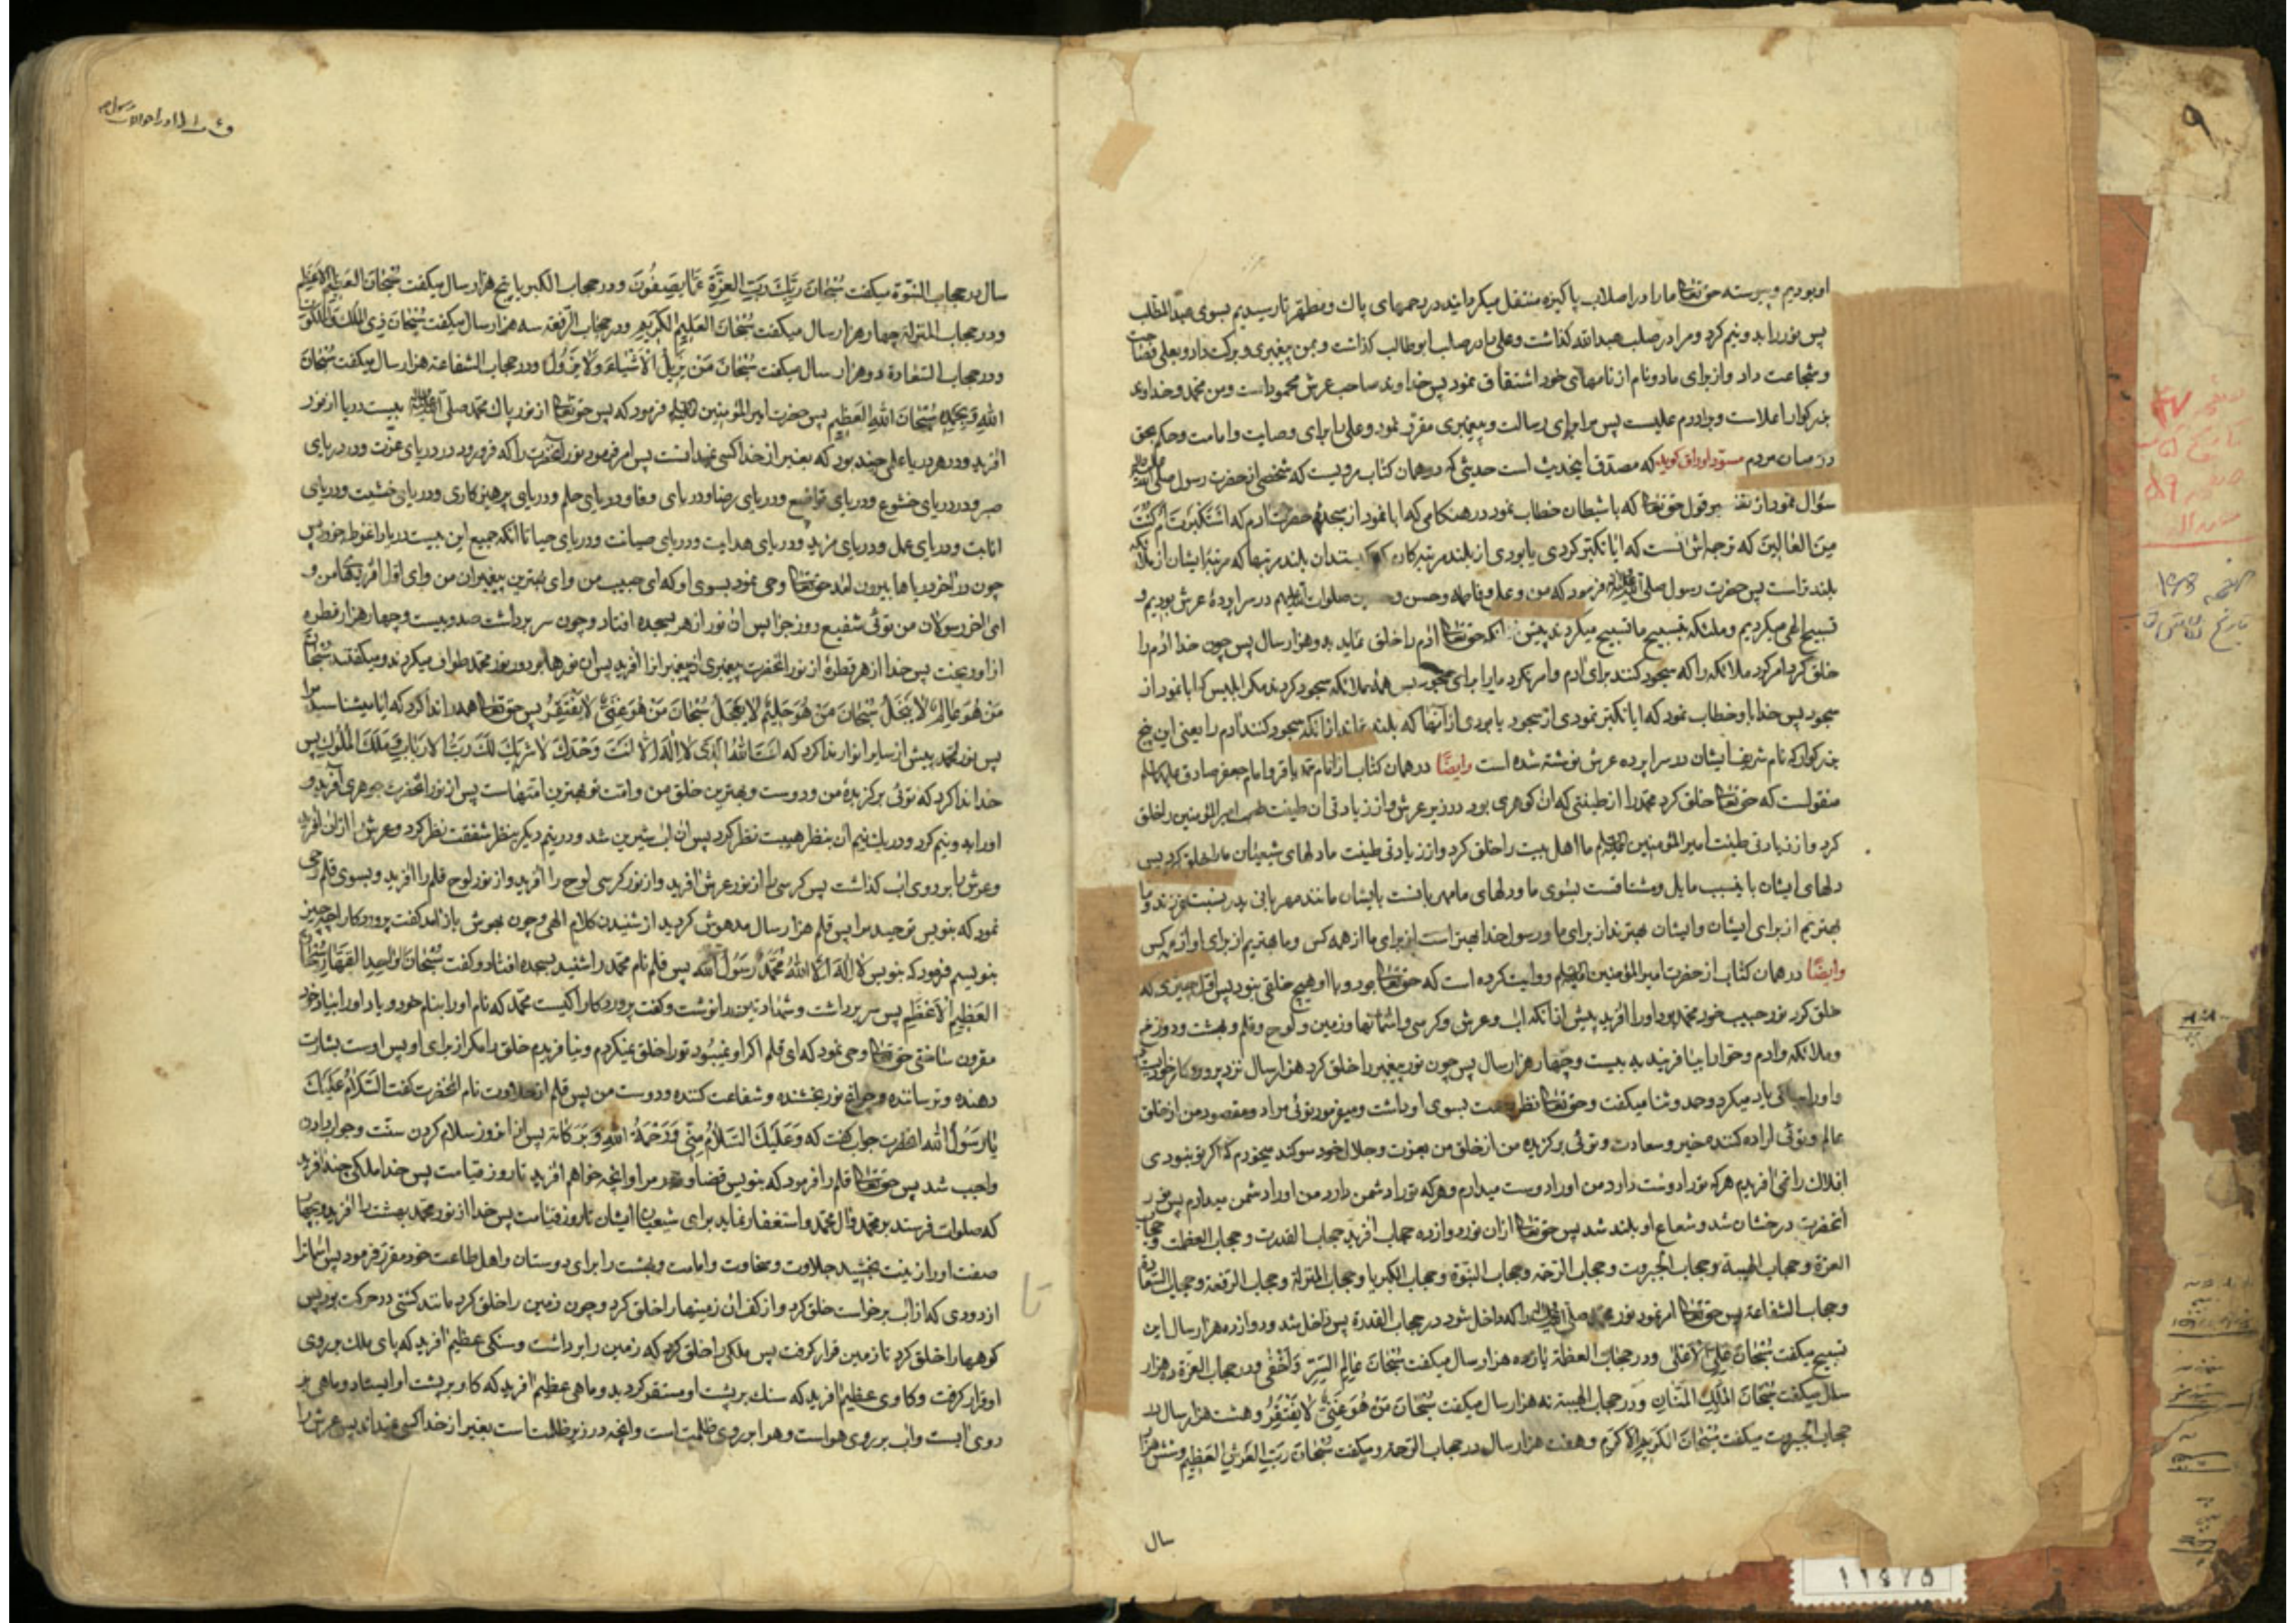 او بودیم و پیوسته حق تعالی ما را در اصلاب پاکیزه منتقل میکردانید در رحمهای پاک و مطهر تا رسیدیم بسوی عبدالمطلب
پس نور را بدو نیم کرد و مرا در صلب عبدالله کذاشت و علی را در صلب ابوطالب کذاشت و بمن پیغمبری و برکت داد و بعلی فصاحت
و شجاعت داد و از برای ما دو نام از نامهای خود اشتقاق نمود پس خداوند صاحب عرش محمود است و من محمد و خداوند
بزرکوار اعلاست و برادرم علیست پس مرا برای رسالت و پیغمبری مقرر نمود و علی را برای وصایت و امامت و حکم بحق
در میان مردم مسوّد اوراق کوید که مصدّق اینحدیث است حدیثی که در همان کتاب مرویست که شخصی از حضرت رسول صلی الله علیه وآله
سؤال نمود از قول حق تعالی که با شیطان خطاب نمود در هنکامی که ابا نمود از سجدهٔ حضرت آدم که استکبرت ام کنت
من العالین که ترجمه‌اش اینست که ایا تکبّر کردی یا بودی از بلند مرتبه کان که بلند مرتبها که مرتبهٔ ایشان از ملائکه
بلندتر است پس حضرت رسول صلی الله علیه وآله فرمود که من و علی و فاطمه و حسن و حسین صلوات الله علیهم در سراپردهٔ عرش بودیم و
تسبیح الهی میکردیم و ملئکه بتسبیح ما تسبیح میکردند پیش از آنکه حق تعالی آدم را خلق نماید بدو هزار سال پس چون خدا آدم را
خلق کرد امر کرد ملائکه را که سجود کنند برای آدم و امر نکرد ما را برای سجود پس همهٔ ملائکه سجود کردند مکر ابلیس که ابا نمود از
سجود پس خدا باو خطاب نمود که ایا تکبّر نمودی از سجود یا بودی از آنها که بلندتراند از آنکه سجود کنند آدم را یعنی این پنج
بزرکوار که نام شریف ایشان در سراپرده عرش نوشته شده است وایضًا در همان کتاب از امام محمد باقر و امام جعفر صادق علیهما السلام
منقولست که حق تعالی خلق کرد محمد را از طینتی که آن کوهری بود در زیر عرش و از زیادتی آن طینت امیرالمؤمنین را خلق
کرد و از زیادتی طینت امیرالمؤمنین علیه السلام ما اهل بیت را خلق کرد و از زیادتی طینت ما دلهای شیعیان ما را خلق کرد پس
دلهای ایشان باینسبب مایل و مشتاقست بسوی ما و دلهای ما مهربانست بایشان مانند مهربانی پدر نسبت بفرزند و ما
بهتریم از برای ایشان و ایشان بهترند از برای ما و رسول خدا بهتر است از برای ما از همه کس و ما بهتریم از برای او از همه کس
وایضًا در همان کتاب از حضرت امیرالمؤمنین علیه السلام روایت کرده است که حق تعالی بود و با او هیچ خلقی نبود پس اوّل چیزی که
خلق کرد نور حبیب خود محمد بود او را آفرید پیش از آنکه آب و عرش و کرسی و آسمانها و زمین و لوح و قلم و بهشت و دوزخ
و ملائکه و آدم و حوّا را بیافریند به بیست و چهار هزار سال پس چون نور پیغمبر را خلق کرد هزار سال نزد پروردکار خود ایستاد
و او را یاد میکرد و حمد و ثنا میکفت و حق تعالی نظر رحمت بسوی او داشت و میفرمود توئی مراد و مقصود من از خلق
عالم و توئی اراده کننده خیر و سعادت و توئی برکزیده من از خلق من بعزت و جلال خود سوکند میخورم که اکر تو نبودی
افلاک را نمی‌آفریدم هر که تو را دوست دارد من او را دوست میدارم و هر که تو را دشمن دارد من او را دشمن میدارم پس نور
آنحضرت درخشان شد و شعاع او بلند شد پس حق تعالی از ان نور دوازده حجاب آفرید حجاب القدرت و حجاب العظمت و حجاب
العزة و حجاب الهیبة و حجاب الجبروت و حجاب الرحمة و حجاب النبوّة و حجاب الکبریا و حجاب المنزلة و حجاب الرفعة و حجاب السعادة
و حجاب الشفاعة پس حق تعالی امر نمود نور محمد صلی الله علیه وآله را که داخل شود در حجاب القدرة پس داخل شد و دوازده هزار سال این
تسبیح میکفت سُبْحانَ عَلِیِّ الْاَعْلی و در حجاب العظمة یازده هزار سال میکفت سُبْحانَ عالِمِ السِّرِّ وَاَخْفی و در حجاب العزّة ده هزار
سال میکفت سُبْحانَ المَلِکِ المَنّانِ و در حجاب الهیبة نه هزار سال میکفت سُبْحانَ مَنْ هُوَ غَنِیٌّ لا یَفْتَقِرُ و هشت هزار سال در
حجاب الجبروت میکفت سُبْحانَ الکَرِیمِ الْاَکْرَم و هفت هزار سال در حجاب الرحمة میکفت سُبْحانَ رَبِّ العَرْشِ العَظِیمِ و شش هزار
سال
سال در حجاب النبوّة میکفت سُبْحانَ رَبِّکَ رَبِّ العِزَّةِ عَمّا یَصِفُونَ و در حجاب الکبریا پنج هزار سال میکفت سُبْحانَ العَظِیمِ الْاَعْظَم
و در حجاب المنزلة چهار هزار سال میکفت سُبْحانَ العَلِیمِ الکَرِیم و در حجاب الرفعة سه هزار سال میکفت سُبْحانَ ذِی المُلْکِ وَالمَلَکُوتِ
و در حجاب السعادة دو هزار سال میکفت سُبْحانَ مَنْ یُزِیلُ الْاَشْیاءَ وَلا یَزُولُ و در حجاب الشفاعة هزار سال میکفت سُبْحانَ
اللهِ وَبِحَمْدِهِ سُبْحانَ اللهِ العَظِیمِ پس حضرت امیرالمؤمنین علیه السلام فرمود که پس حق تعالی از نور پاک محمد صلی الله علیه وآله بیست دریا از نور
آفرید و در هر دریا علمی چند بود که بغیر از خدا کسی نمیدانست پس امر فرمود نور آنحضرت را که فرو رود در دریای عزّت و در دریای
صبر و در دریای خشوع و دریای تواضع و دریای رضا و دریای وفا و دریای حلم و دریای پرهیزکاری و دریای خشیت و دریای
انابت و دریای عمل و دریای مزید و دریای هدایت و دریای صیانت و دریای حیا تا آنکه جمیع این بیست دریا را غوطه خورد پس
چون در آخر دریاها بیرون آمد حق تعالی وحی نمود بسوی او که ای حبیب من و ای بهترین پیغمبران من و ای اوّل آفریدهای من و
ای آخر رسولان من توئی شفیع روز جزا پس ان نور ازهر بسجده افتاد و چون سر برداشت صد و بیست و چهار هزار قطره
از او ریخت پس خدا از هر قطرهٔ از نور آنحضرت پیغمبری از پیغمبران را آفرید پس ان نورها بر دور نور محمد طواف میکردند و میکفتند سُبْحانَ
مَنْ هُوَ عالِمٌ لا یَجْهَلُ سُبْحانَ مَنْ هُوَ حَلِیمٌ لا یَعْجَلُ سُبْحانَ مَنْ هُوَ غَنِیٌّ لا یَفْتَقِرُ پس حق تعالی همه را ندا کرد که ایا میشناسید مرا
پس نور محمد پیش از سایر انوار ندا کرد که اَنْتَ اللهُ الَّذِی لا اِلهَ اِلّا اَنْتَ وَحْدَکَ لا شَرِیکَ لَکَ رَبُّ الْاَرْبابِ وَمَلِکُ المُلُوکِ پس
خدا ندا کرد که توئی برکزیدهٔ من و دوست و بهترین خلق من و امّت تو بهترین امّتهاست پس از نور آنحضرت جوهری آفرید و
او را بدو نیم کرد و در یک نیم آن بنظر هیبت نظر کرد پس آن آب شیرین شد و در نیم دیکر بنظر شفقت نظر کرد و عرش را از آن آفرید
و عرش را بر روی آب کذاشت پس کرسی را از نور عرش آفرید و از نور کرسی لوح را آفرید و از نور لوح قلم را آفرید و بسوی قلم وحی
نمود که بنویس توحید مرا پس قلم هزار سال مدهوش کردید از شنیدن کلام الهی و چون بهوش باز آمد کفت پروردکارا چه چیز
بنویسم فرمود که بنویس لا اِلهَ اِلّا اللهُ مُحَمَّدٌ رَسُولُ الله پس قلم نام محمد را شنید بسجده افتاد و کفت سُبْحانَ الواحِدِ القَهّارِ سُبْحانَ
العَظِیمِ الْاَعْظَم پس سر برداشت و شهادتین را نوشت و کفت پروردکارا کیست محمد که نام او را بنام خود و یاد او را بیاد خود
مقرون ساختی حق تعالی وحی نمود که ای قلم اکر او نمیبود تو را خلق نمیکردم و نیافریدم خلق را مکر از برای او پس اوست بشارت
دهنده و ترساننده و چراغ نور بخشنده و شفاعت کننده و دوست من پس قلم از حلاوت نام آنحضرت کفت السَّلامُ عَلَیْکَ
یا رَسُولَ الله آنحضرت جواب کفت که وَعَلَیْکَ السَّلامُ مِنّی وَرَحْمَةُ اللهِ وَبَرَکاتُه پس از آنروز سلام کردن سنّت و جواب دادن
واجب شد پس حق تعالی قلم را فرمود که بنویس قضا و قدر مرا و آنچه خواهم آفرید تا روز قیامت پس خدا ملکی چند آفرید
که صلوات فرستند بر محمد و آل محمد و استغفار نماید برای شیعیان ایشان تا روز قیامت پس خدا از نور محمد بهشت را آفرید و بچهار
صفت او را زینت بخشید جلالت و سخاوت و امامت و بهشت را برای دوستان و اهل طاعت خود مقرّر فرمود پس آسمانها را
از دودی که از آب برخواست خلق کرد و از کف آن زمینها را خلق کرد و چون زمین را خلق کرد مانند کشتی در حرکت بود پس
کوهها را خلق کرد تا زمین قرار کرفت پس ملکی را خلق کرد که زمین را برداشت و سنکی عظیم آفرید که پای ملک بر روی
او قرار کرفت و کاوی عظیم آفرید که سنک بر پشت او مستقر کردید و ماهی عظیم آفرید که کاو بر پشت او ایستاد و ماهی بر
روی آبست و آب بر روی هواست و هوا بر روی ظلمت است و آنچه در زیر ظلمت است بغیر از خدا کسی نمیداند پس عرش را
تا
۹
صفحه
تاریخ
۱۱۶۷۵